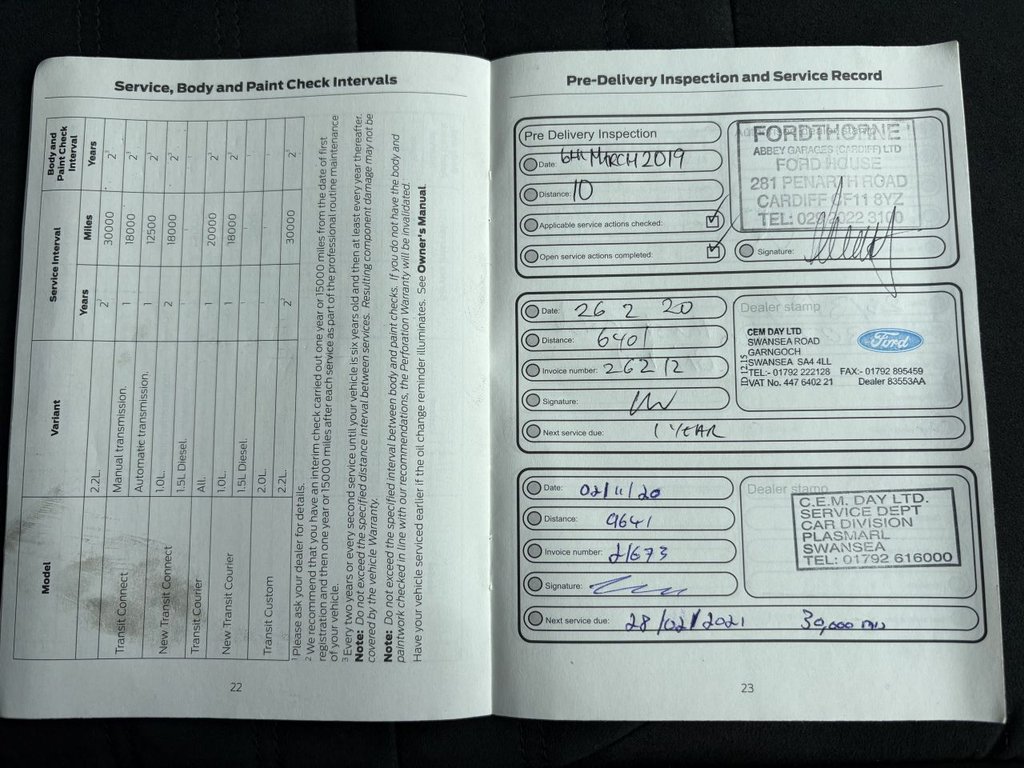 Service, Body and Paint Check Intervals
Model Variant Service Interval Body and Paint Check Interval
Years Miles Years
Transit Connect 2.2L. 2¹ 30000 2³
Manual transmission. 1 18000 2³
Automatic transmission. 1 12500 2³
New Transit Connect 1.0L. 2 18000 2³
1.5L Diesel. - - -
Transit Courier All. 1 20000 2³
New Transit Courier 1.0L. 1 18000 2³
1.5L Diesel. - - -
Transit Custom 2.0L. - - -
2.2L. 2¹ 30000 2³
¹ Please ask your dealer for details.
² We recommend that you have an interim check carried out one year or 15000 miles from the date of first
registration and then one year or 15000 miles after each service as part of the professional routine maintenance
of your vehicle.
³ Every two years or every second service until your vehicle is six years old and then at least every year thereafter.
Note: Do not exceed the specified distance interval between services. Resulting component damage may not be
covered by the vehicle Warranty.
Note: Do not exceed the specified interval between body and paint checks. If you do not have the body and
paintwork checked in line with our recommendations, the Perforation Warranty will be invalidated.
Have your vehicle serviced earlier if the oil change reminder illuminates. See Owner's Manual.
22
Pre-Delivery Inspection and Service Record
Pre Delivery Inspection
Date: 6th MARCH 2019
Distance: 10
Applicable service actions checked:
Open service actions completed:
FORDTHORNE
ABBEY GARAGES (CARDIFF) LTD
FORD HOUSE
281 PENARTH ROAD
CARDIFF CF11 8YZ
TEL:
Signature:
Date: 26 2 20
Distance: 6401
Invoice number: 26212
Signature:
Next service due: 1 YEAR
Dealer stamp
CEM DAY LTD
SWANSEA ROAD
GARNGOCH
SWANSEA SA4 4LL
TEL:- 01792 222128 FAX:- 01792 895459
VAT No. 447 6402 21 Dealer 83553AA
ID 12.15
Ford
Date: 02/11/20
Distance: 9641
Invoice number: 21673
Signature:
Next service due: 28/02/2021 30,000
Dealer stamp
C.E.M. DAY LTD.
SERVICE DEPT
CAR DIVISION
PLASMARL
SWANSEA
TEL: 01792 616000
23